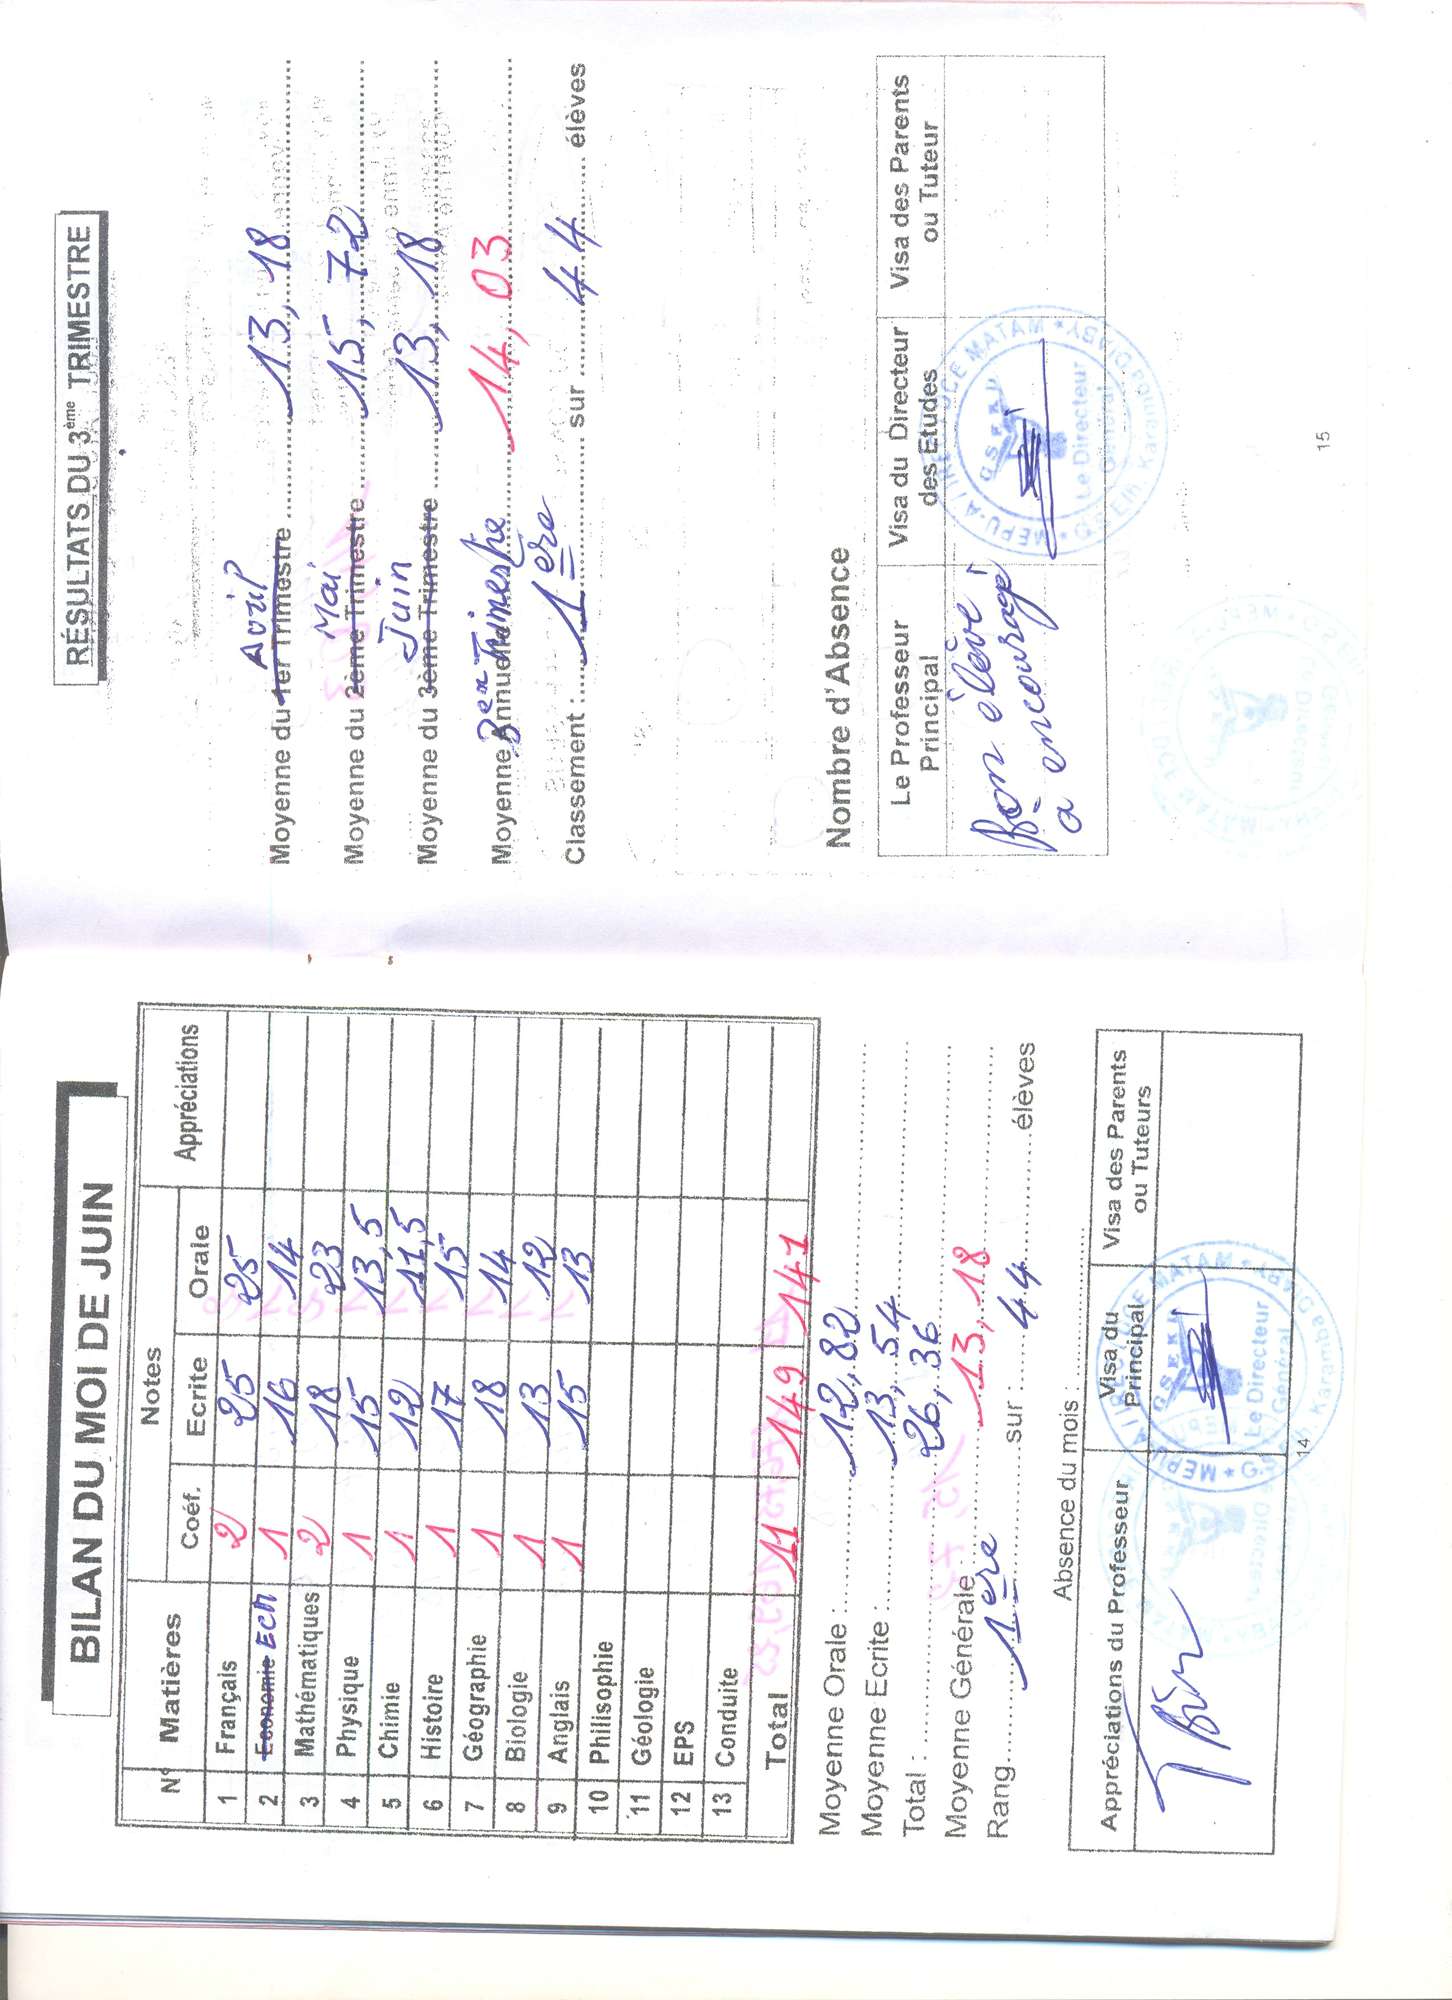 BILAN DU MOI DE JUIN
N° Matières Notes Appréciations
Coéf. Ecrite Orale
1 Français 2 25 25
2 Economie ECM 1 16 14
3 Mathématiques 2 18 23
4 Physique 1 15 13,5
5 Chimie 1 12 11,5
6 Histoire 1 17 15
7 Géographie 1 18 14
8 Biologie 1 13 12
9 Anglais 1 15 13
10 Philisophie
11 Géologie
12 EPS
13 Conduite
Total 11 149 141
Moyenne Orale : 12,82
Moyenne Ecrite : 13,54
Total : 26,36
Moyenne Générale 13,18
Rang 1ere sur : 44 élèves
Absence du mois :
Appréciations du Professeur Visa du Principal Visa des Parents ou Tuteurs
TBien
MEPU-A IRE DCE MATAM
GSEKD
Le Directeur
Général
14
RÉSULTATS DU 3ème TRIMESTRE
Avril
Moyenne du 1er Trimestre 13,18
Mai
Moyenne du 2ème Trimestre 15,72
Juin
Moyenne du 3ème Trimestre 13,18
3em Trimestre
Moyenne Annuelle 14,03
Classement : 1ere sur 44 élèves
Nombre d'Absence
Le Professeur Principal Visa du Directeur des Etudes Visa des Parents ou Tuteur
Bon élève
à encouragé
MEPU-A IRE DCE MATAM
GSEKD
Le Directeur
Général
15